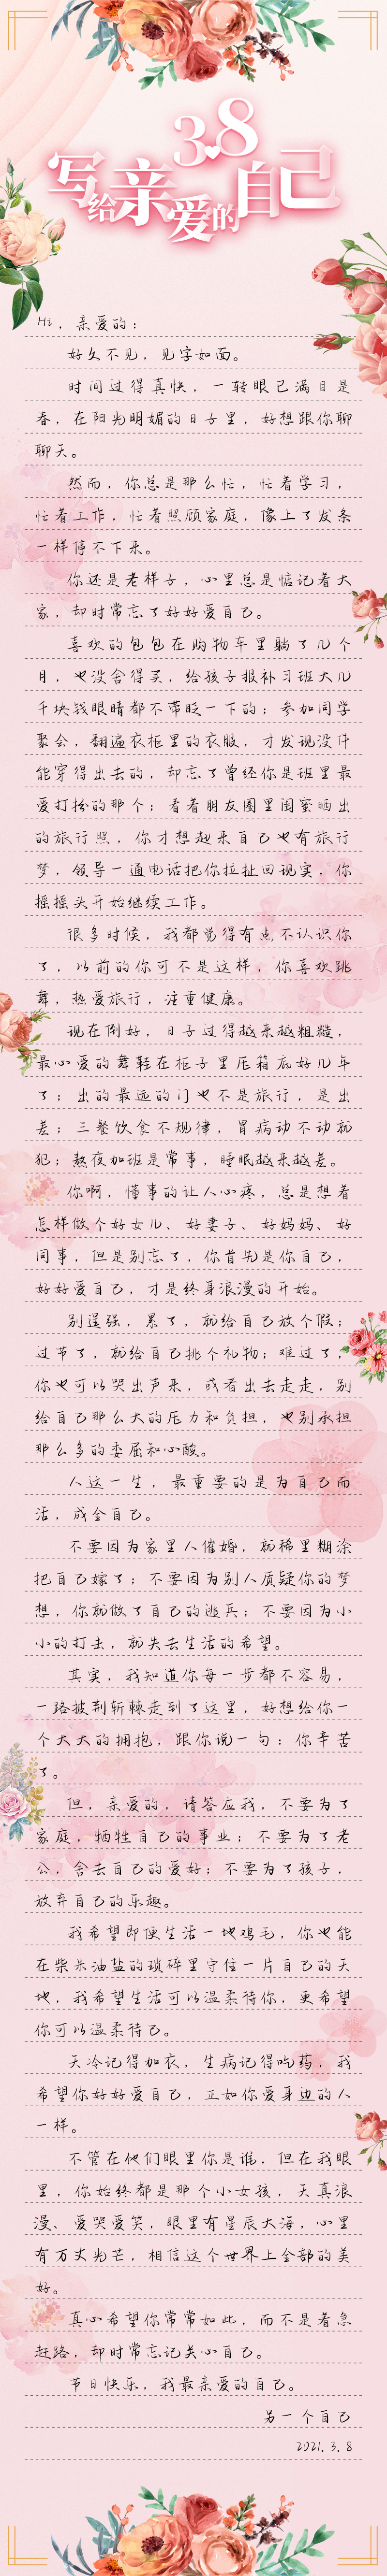 3.8
写给亲爱的自己
Hi，亲爱的：
好久不见，见字如面。
时间过得真快，一转眼已满目是
春，在阳光明媚的日子里，好想跟你聊
聊天。
然而，你总是那么忙，忙着学习，
忙着工作，忙着照顾家庭，像上了发条
一样停不下来。
你还是老样子，心里总是惦记着大
家，却时常忘了好好爱自己。
喜欢的包包在购物车里躺了几个
月，也没舍得买，给孩子报补习班大几
千块钱眼睛都不带眨一下的；参加同学
聚会，翻遍衣柜里的衣服，才发现没件
能穿得出去的，却忘了曾经你是班里最
爱打扮的那个；看着朋友圈里闺蜜晒出
的旅行照，你才想起来自己也有旅行
梦，领导一通电话把你拉扯回现实，你
摇摇头开始继续工作。
很多时候，我都觉得有点不认识你
了，以前的你可不是这样，你喜欢跳
舞，热爱旅行，注重健康。
现在倒好，日子过得越来越粗糙，
最心爱的舞鞋在柜子里压箱底好几年
了；出的最远的门也不是旅行，是出
差；三餐饮食不规律，胃病动不动就
犯；熬夜加班是常事，睡眠越来越差。
你啊，懂事的让人心疼，总是想着
怎样做个好女儿、好妻子、好妈妈、好
同事，但是别忘了，你首先是你自己，
好好爱自己，才是终身浪漫的开始。
别逞强，累了，就给自己放个假；
过节了，就给自己挑个礼物；难过了，
你也可以哭出声来，或者出去走走，别
给自己那么大的压力和负担，也别承担
那么多的委屈和心酸。
人这一生，最重要的是为自己而
活，成全自己。
不要因为家里人催婚，就稀里糊涂
把自己嫁了；不要因为别人质疑你的梦
想，你就做了自己的逃兵；不要因为小
小的打击，就失去生活的希望。
其实，我知道你每一步都不容易，
一路披荆斩棘走到了这里，好想给你一
个大大的拥抱，跟你说一句：你辛苦
了。
但，亲爱的，请答应我，不要为了
家庭，牺牲自己的事业；不要为了老
公，舍去自己的爱好；不要为了孩子，
放弃自己的乐趣。
我希望即便生活一地鸡毛，你也能
在柴米油盐的琐碎里守住一片自己的天
地，我希望生活可以温柔待你，更希望
你可以温柔待己。
天冷记得加衣，生病记得吃药，我
希望你好好爱自己，正如你爱身边的人
一样。
不管在他们眼里你是谁，但在我眼
里，你始终都是那个小女孩，天真浪
漫、爱哭爱笑，眼里有星辰大海，心里
有万丈光芒，相信这个世界上全部的美
好。
真心希望你常常如此，而不是着急
赶路，却时常忘记关心自己。
节日快乐，我最亲爱的自己。
另一个自己
2021.3.8